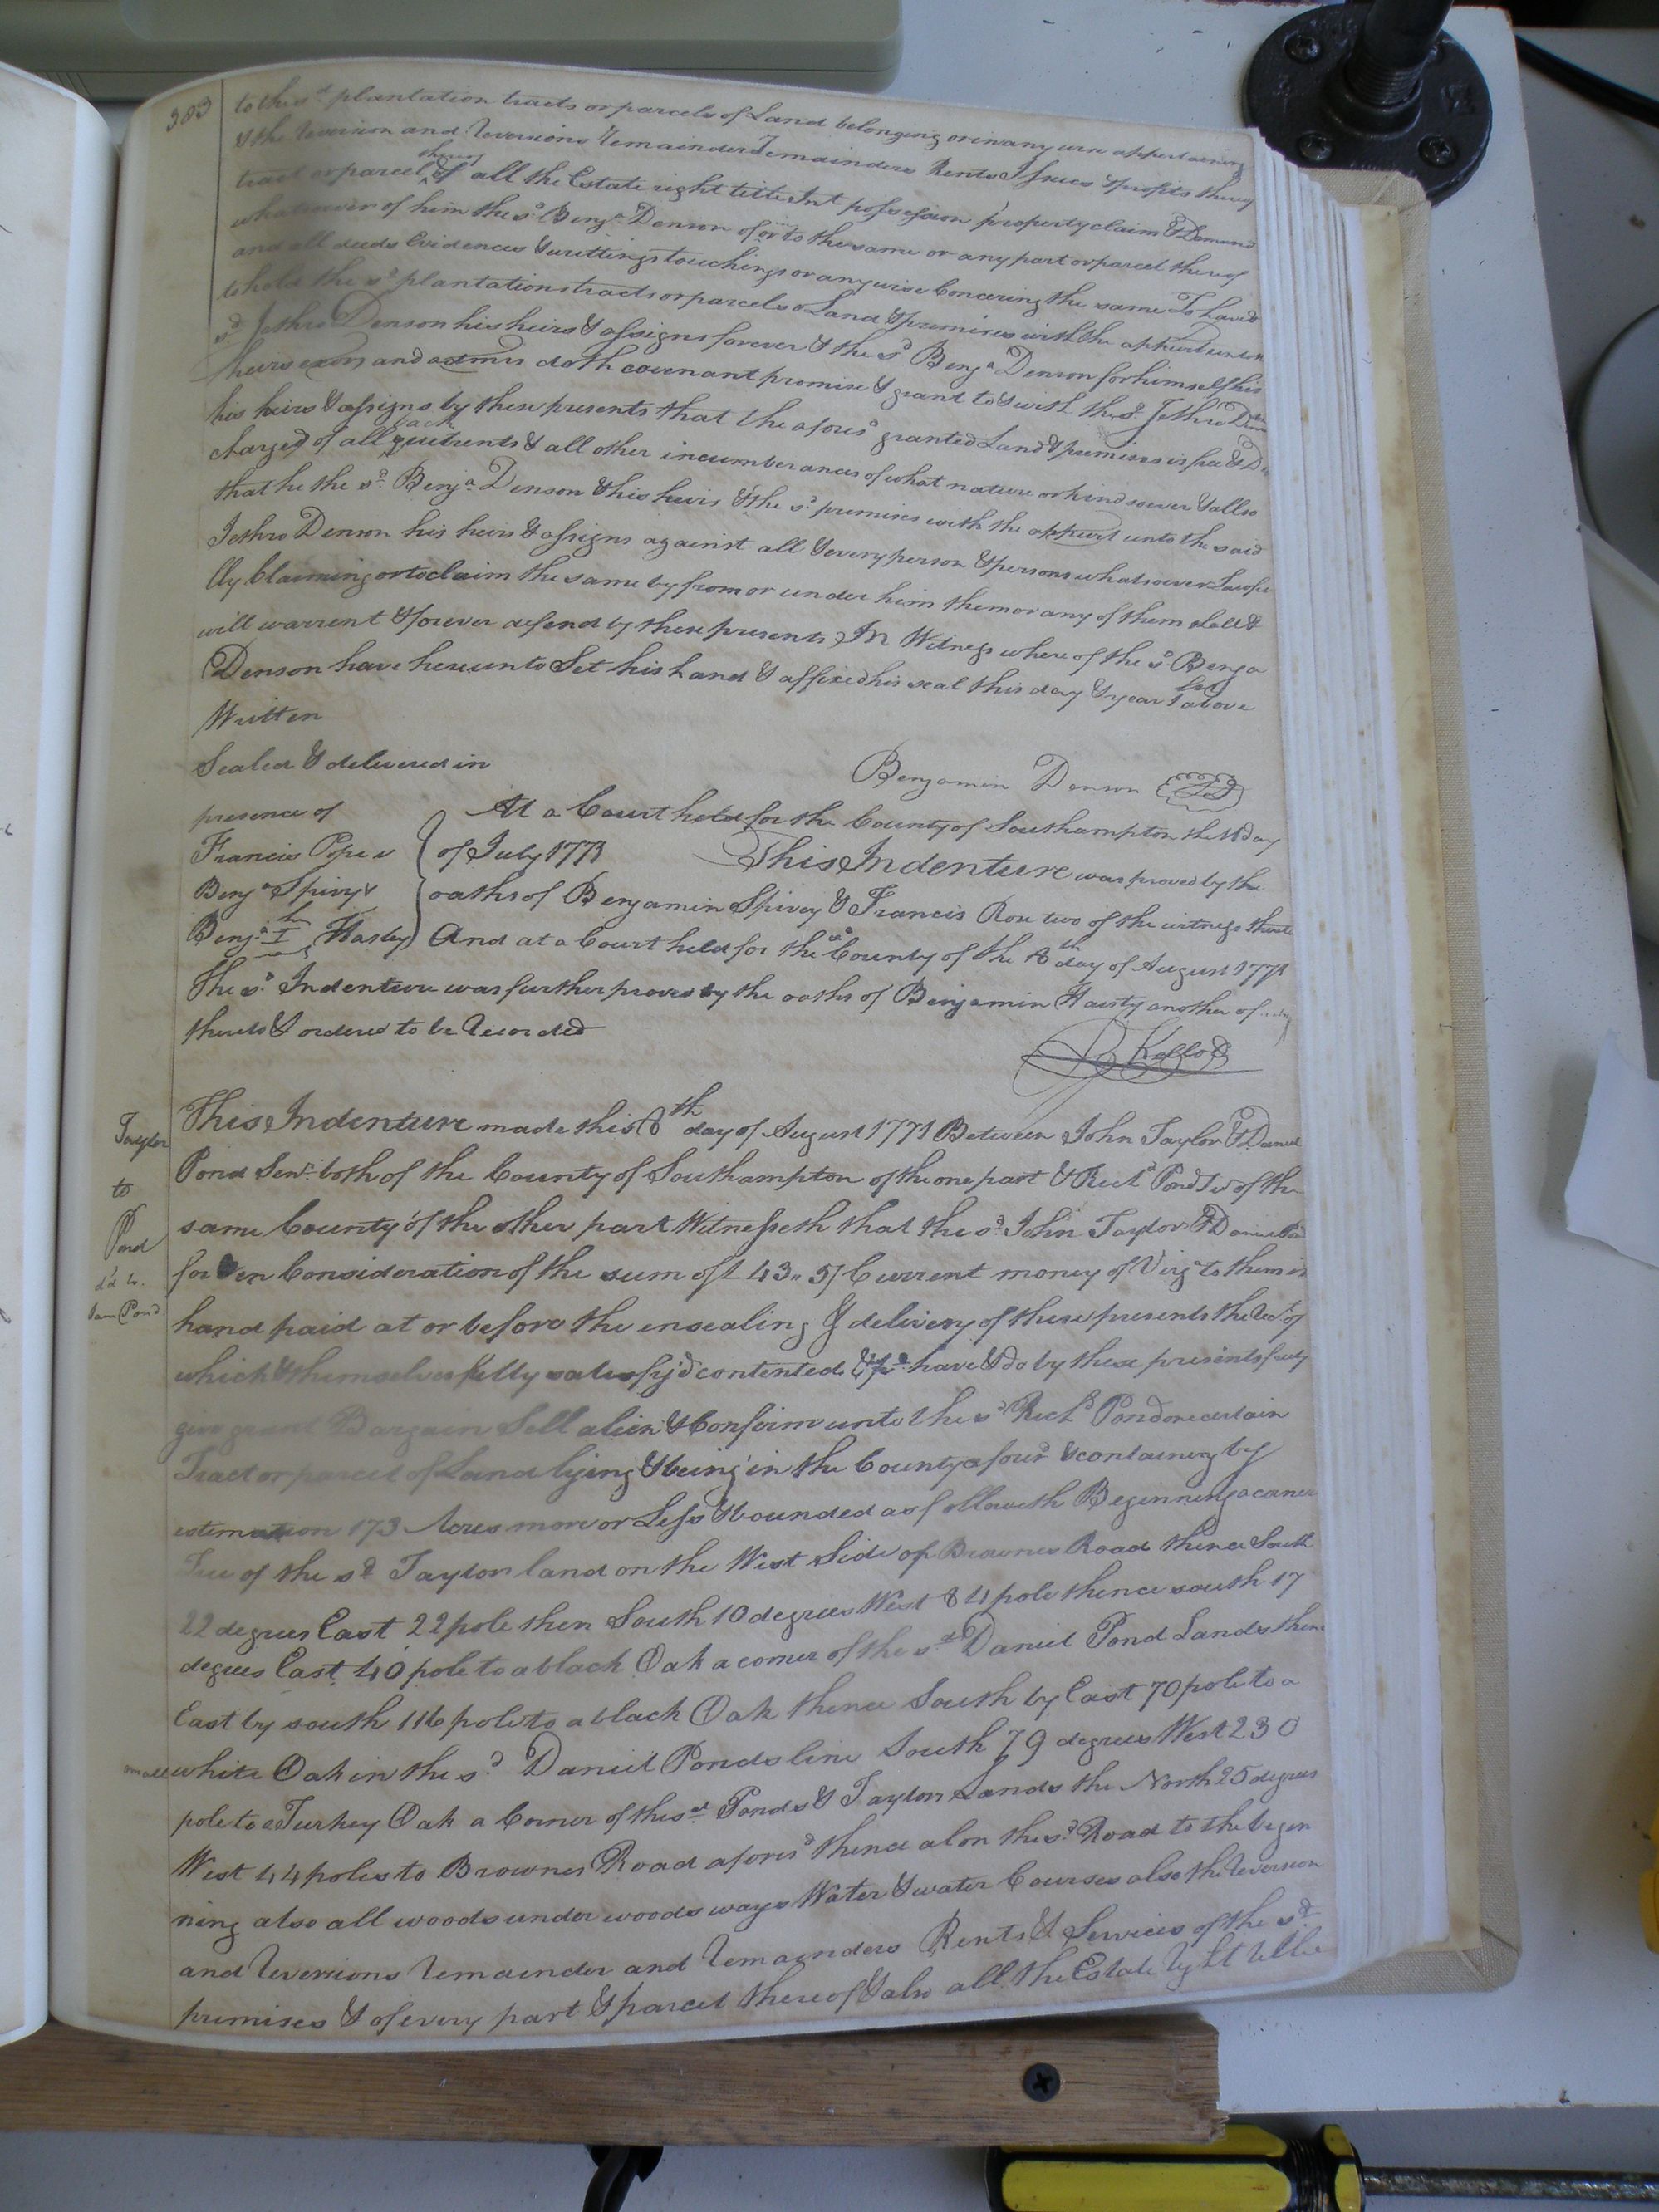 383
to the sd plantation tracts or parcels of Land belonging or in any wise appertaining
& the Reversion and Reversions Remainder Remainders Rents Issues & profits thereof
tract or parcel thereof & all the Estate right title Int possession property claim & Demand
whatsoever of him the sd Benja Denson of or to the same or any part or parcel thereof
and all deeds Evidences & writtings touchings or any wise Concering the same To have &
to hold the sd plantation tracts or parcels of Land & premises with the appurtun
sd Jethro Denson his heirs & assigns forever & the sd Benja Denson for himself his
heirs exors and admrs doth covenant promise & grant to & with the sd Jethro Denson
his heirs & assigns by these presents that the afores'd granted Land & premises is free & Dis
charged of all back quitrents & all other incumberances of what nature or kind soever & allso
that he the sd Benja Denson & his heirs & the sd premises with the appurt unto the said
Jethro Denson his heirs & assigns against all & every person & persons whatsoever Lawfu
lly Claiming or to claim the same by from or under him them or any of them shall &
will warrent & forever defend by these presents In Witness where of the sd Benja
Denson have hereunto Set his hand & affixed his seal this day & year first above
Written
Sealed & delivered in
Benjamin Denson LS
presence of
At a Court held for the County of Southampton the day
Francis Pope
of July 1771 This Indenture was proved by the
Benja Spivy
oaths of Benjamin Spivey & Francis two of the witness thereto
Benja I Hasty
And at a Court held for the sd County of the 8th day of August 1771
The sd Indenture was further proved by the oaths of Benjamin Hasty another of
thereto & ordered to be Recorded
Taylor
to
Pond
d'd to
Sam Pond
This Indenture made this 8th day of August 1771 Between John Taylor & Daniel
Pond Senr both of the County of Southampton of the one part & Richd Pond Jr of the
same County of the other part Witnesseth that the sd John Taylor & Daniel Pond
for & en Consideration of the sum of £ 43,, 5/ Current money of Virga to them in
hand paid at or before the ensealing & delivery of these presents the Rect of
which & themselves fully satesfy'd contented & pd have & do by these presents fully
give grant Bargain Sell alien & Confirm unto the sd Richd Pond one certain
Tract or parcel of Land lying & being in the County afores'd & containing by
estimation 173 Acres more or Less & bounded as followeth Beginning a corner
Tree of the sd Taylor land on the West Side of Brownes Road thence South
22 degrees East 22 pole then South 10 degrees West 84 pole thence south 17
degrees East 40 pole to a black Oak a corner of the sd Daniel Pond Lands thence
East by south 116 pole to a black Oak thence South by East 70 pole to a
small white Oak in the sd Daniel Ponds line South 79 degrees West 230
pole to a Turkey Oak a Corner of the sd Ponds & Taylon Lands the North 25 degrees
West 44 poles to Brownes Road afores'd thence alon the sd Road to the begen
ning also all woods under woods ways Water & water Courses also the Reversion
and Reversions Remainder and Remainders Rents & Services of the sd
premises & of every part & parcel thereof & also all the Estate